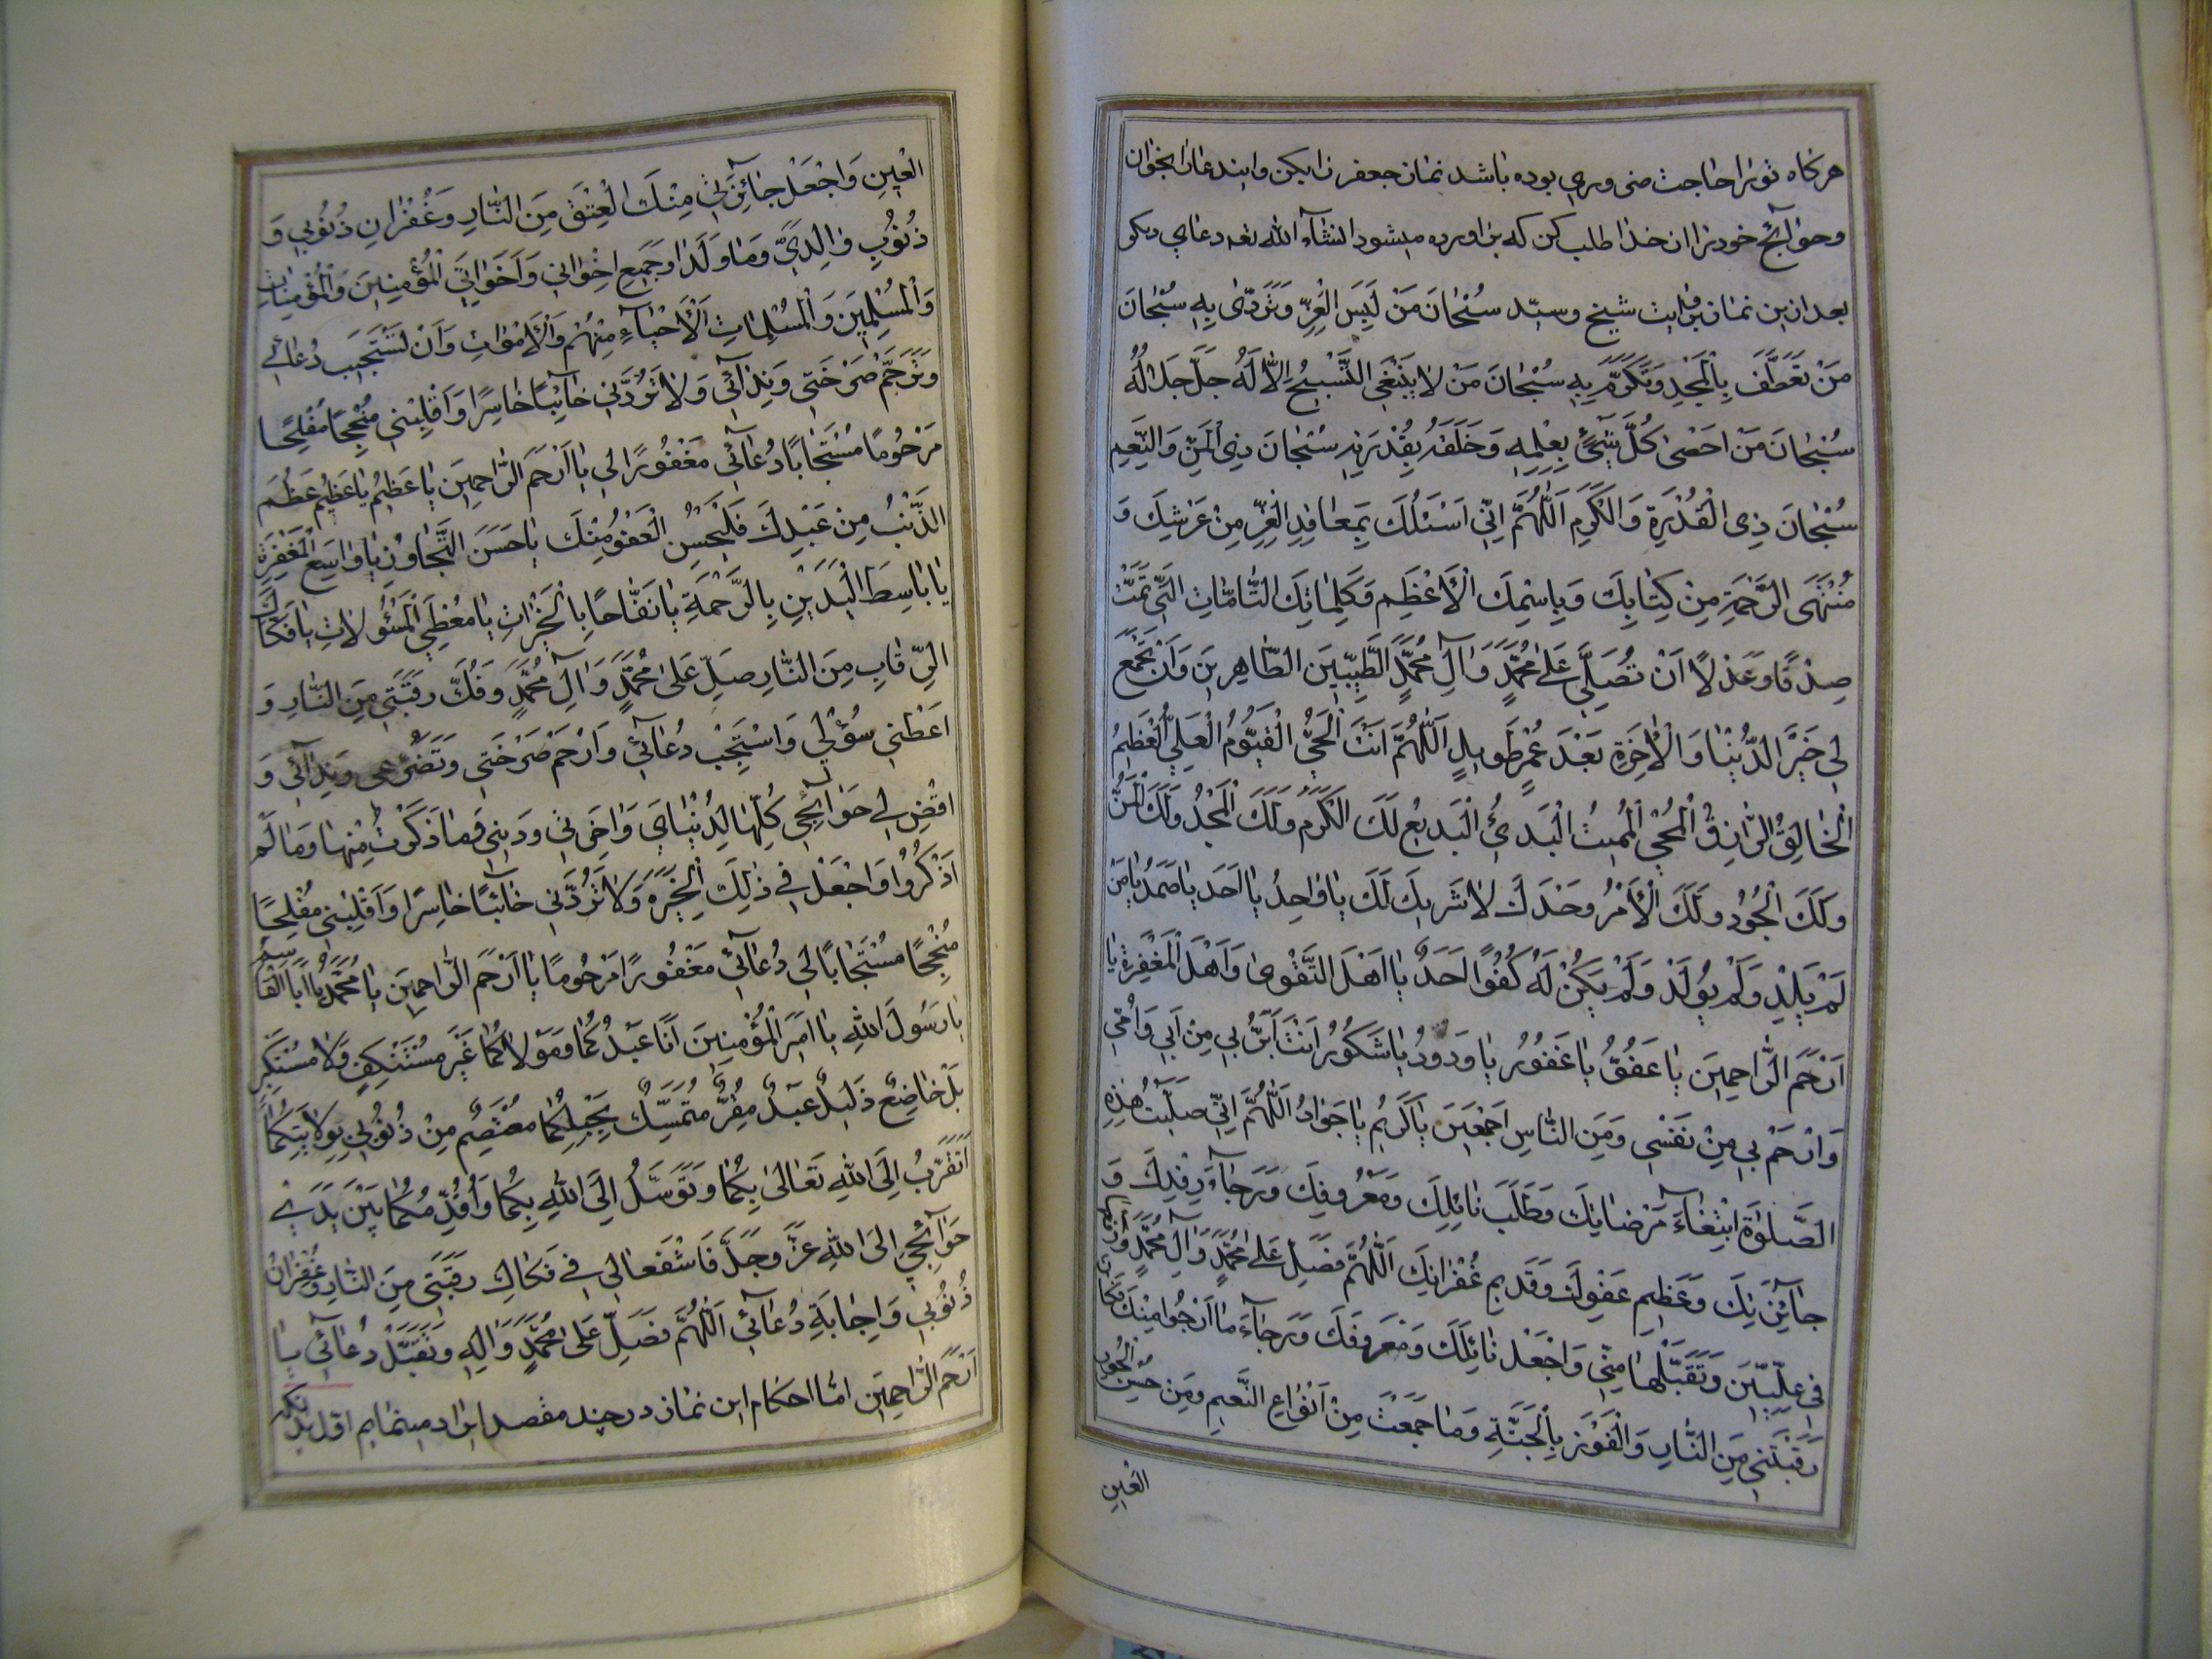 هرکاه تورا حاجت ضروری بوده باشد نماز جعفر را بکن و ایندعا را بخوان
و حوآئج خود را از خدا طلب کن که براورده میشود انشآء الله تعه دعای دیکر
بعد از این نماز بروایت شیخ و سیّد سُبْحَانَ مَنْ لَبِسَ الْعِزَّ وَتَرَدّىٰ بِهِ سُبْحَانَ
مَنْ تَعَطَّفَ بِالْمَجْدِ وَتَكَرَّمَ بِهِ سُبْحَانَ مَنْ لاٰ يَنْبَغِي التَّسْبِيحُ اِلّاٰ لَهُ جَلَّ جَلاٰلُهُ
سُبْحَانَ مَنْ اَحْصىٰ كُلَّ شَيْئٍ بِعِلْمِهِ وَخَلَقَهُ بِقُدْرَتِهِ سُبْحَانَ ذِي الْمَنِّ وَالنِّعَمِ
سُبْحَانَ ذِي الْقُدْرَةِ وَالْكَرَمِ اَللّٰهُمَّ اِنّي اَسْئَلُكَ بِمَعٰاقِدِ الْعِزِّ مِنْ عَرْشِكَ وَ
مُنْتَهَى الرَّحْمَةِ مِنْ كِتٰابِكَ وَبِاسْمِكَ الْاَعْظَمِ وَكَلِمٰاتِكَ التّٰامّٰاتِ الَّتي تَمَّتْ
صِدْقًا وَعَدْلًا اَنْ تُصَلِّيَ عَلىٰ مُحَمَّدٍ وَآلِ مُحَمَّدٍ الطَّيِّبِينَ الطّٰاهِرِينَ وَاَنْ تَجْمَعَ
لِي خَيْرَ الدُّنْيٰا وَالْاٰخِرَةِ بَعْدَ عُمْرٍ طَوِيلٍ اَللّٰهُمَّ اَنْتَ الْحَيُّ الْقَيُّومُ الْعَلِيُّ الْعَظِيمُ
الْخٰالِقُ الرّٰازِقُ الْمُحْيِي الْمُمِيتُ الْبَدِئُ الْبَدِيعُ لَكَ الْكَرَمُ وَلَكَ الْمَجْدُ وَلَكَ الْمَنُّ
وَلَكَ الْجُودُ وَلَكَ الْاَمْرُ وَحْدَكَ لاٰ شَرِيكَ لَكَ يٰا وٰاحِدُ يٰا اَحَدُ يٰا صَمَدُ يٰا مَنْ
لَمْ يَلِدْ وَلَمْ يُولَدْ وَلَمْ يَكُنْ لَهُ كُفُوًا اَحَدٌ يٰا اَهْلَ التَّقْوىٰ وَاَهْلَ الْمَغْفِرَةِ يٰا
اَرْحَمَ الرّٰاحِمِينَ يٰا عَفُوُّ يٰا غَفُورُ يٰا وَدُودُ يٰا شَكُورُ اَنْتَ اَبَرُّ بي مِنْ اَبي وَاُمّي
وَاَرْحَمُ بي مِنْ نَفْسي وَمِنَ النّٰاسِ اَجْمَعِينَ يٰا كَرِيمُ يٰا جَوٰادُ اَللّٰهُمَّ اِنّي صَلَّيْتُ هٰذِهِ
الصَّلوٰةَ ابْتِغٰآءَ مَرْضٰاتِكَ وَطَلَبَ نٰائِلِكَ وَمَعْرُوفِكَ وَرَجٰآءَ رِفْدِكَ وَ
جٰآئِزَتِكَ وَعَظِيمِ عَفْوِكَ وَقَدِيمِ غُفْرٰانِكَ اَللّٰهُمَّ فَصَلِّ عَلىٰ مُحَمَّدٍ وَآلِ مُحَمَّدٍ وَارْفَعْهٰا
في عِلِّيِّينَ وَتَقَبَّلْهٰا مِنّي وَاجْعَلْ نٰائِلَكَ وَمَعْرُوفَكَ وَرَجٰآءَ مٰا اَرْجُوا مِنْكَ فَكٰاكَ
رَقَبَتي مِنَ النّٰارِ وَالْفَوْزَ بِالْجَنَّةِ وَمٰا جَمَعْتَ مِنْ اَنْوٰاعِ النَّعِيمِ وَمِنْ حُسْنِ الْحُورِ
العین
الْعِينِ وَاجْعَلْ جٰائِزَتي مِنْكَ الْعِتْقَ مِنَ النّٰارِ وَغُفْرٰانَ ذُنُوبي وَ
ذُنُوبِ وٰالِدَيَّ وَمٰا وَلَدٰا وَجَمِيعِ اِخْوٰاني وَاَخَوٰاتِيَ الْمُؤْمِنِينَ وَالْمُؤْمِنٰاتِ
وَالْمُسْلِمِينَ وَالْمُسْلِمٰاتِ الْاَحْيٰآءِ مِنْهُمْ وَالْاَمْوٰاتِ وَاَنْ تَسْتَجِيبَ دُعٰائي
وَتَرْحَمَ صَرْخَتي وَنِدٰآئي وَلاٰ تَرُدَّني خٰآئِبًا خٰاسِرًا وَاَقْلِبْني مُنْجِحًا مُفْلِحًا
مَرْحُومًا مُسْتَجٰابًا دُعٰآئي مَغْفُورًا لي يٰا اَرْحَمَ الرّٰاحِمِينَ يٰا عَظِيمُ يٰا عَظِيمُ عَظُمَ
الذَّنْبُ مِنْ عَبْدِكَ فَلْيَحْسُنِ الْعَفْوُ مِنْكَ يٰا حَسَنَ التَّجٰاوُزِ يٰا وٰاسِعَ الْمَغْفِرَةِ
يٰا بٰاسِطَ الْيَدَيْنِ بِالرَّحْمَةِ يٰا نَفّٰاحًا بِالْخَيْرٰاتِ يٰا مُعْطِيَ الْمَسْئُولاٰتِ يٰا فَكّٰاكَ
الرِّقٰابِ مِنَ النّٰارِ صَلِّ عَلىٰ مُحَمَّدٍ وَآلِ مُحَمَّدٍ وَفُكَّ رَقَبَتي مِنَ النّٰارِ وَ
اَعْطِني سُؤْلي وَاسْتَجِبْ دُعٰآئي وَارْحَمْ صَرْخَتي وَتَضَرُّعي وَنِدٰآئي وَ
اقْضِ لي حَوٰآئِجي كُلَّهٰا لِدُنْيٰايَ وَاٰخِرَتي وَدِيني مٰا ذَكَرْتُ مِنْهٰا وَمٰا لَمْ
اَذْكُرْ وَاجْعَلْ في ذٰلِكَ الْخِيَرَةَ وَلاٰ تَرُدَّني خٰآئِبًا خٰاسِرًا وَاَقْلِبْني مُفْلِحًا
مُنْجِحًا مُسْتَجٰابًا لي دُعٰآئي مَغْفُورًا مَرْحُومًا يٰا اَرْحَمَ الرّٰاحِمِينَ يٰا مُحَمَّدُ يٰا اَبَا الْقٰاسِمِ
يٰا رَسُولَ اللّٰهِ يٰا اَمِيرَ الْمُؤْمِنِينَ اَنَا عَبْدُكُمٰا وَمَوْلاٰكُمٰا غَيْرُ مُسْتَنْكِفٍ وَلاٰ مُسْتَكْبِرٍ
بَلْ خٰاضِعٌ ذَلِيلٌ عَبْدٌ مُقِرٌّ مُتَمَسِّكٌ بِحَبْلِكُمٰا مُعْتَصِمٌ مِنْ ذُنُوبي بِوِلاٰيَتِكُمٰا
اَتَقَرَّبُ اِلَى اللّٰهِ تَعٰالىٰ بِكُمٰا وَتَوَسَّلُ اِلَى اللّٰهِ بِكُمٰا وَاُقَدِّمُكُمٰا بَيْنَ يَدَيْ
حَوٰآئِجي اِلَى اللّٰهِ عَزَّ وَجَلَّ فَاشْفَعٰا لي في فَكٰاكِ رَقَبَتي مِنَ النّٰارِ وَغُفْرٰانِ
ذُنُوبي وَاِجٰابَةِ دُعٰآئي اَللّٰهُمَّ فَصَلِّ عَلىٰ مُحَمَّدٍ وَاٰلِهِ وَتَقَبَّلْ دُعٰآئي يٰا
اَرْحَمَ الرّٰاحِمِينَ امّا احکام این نماز در چند مقصد ایراد مینمایم اوّل